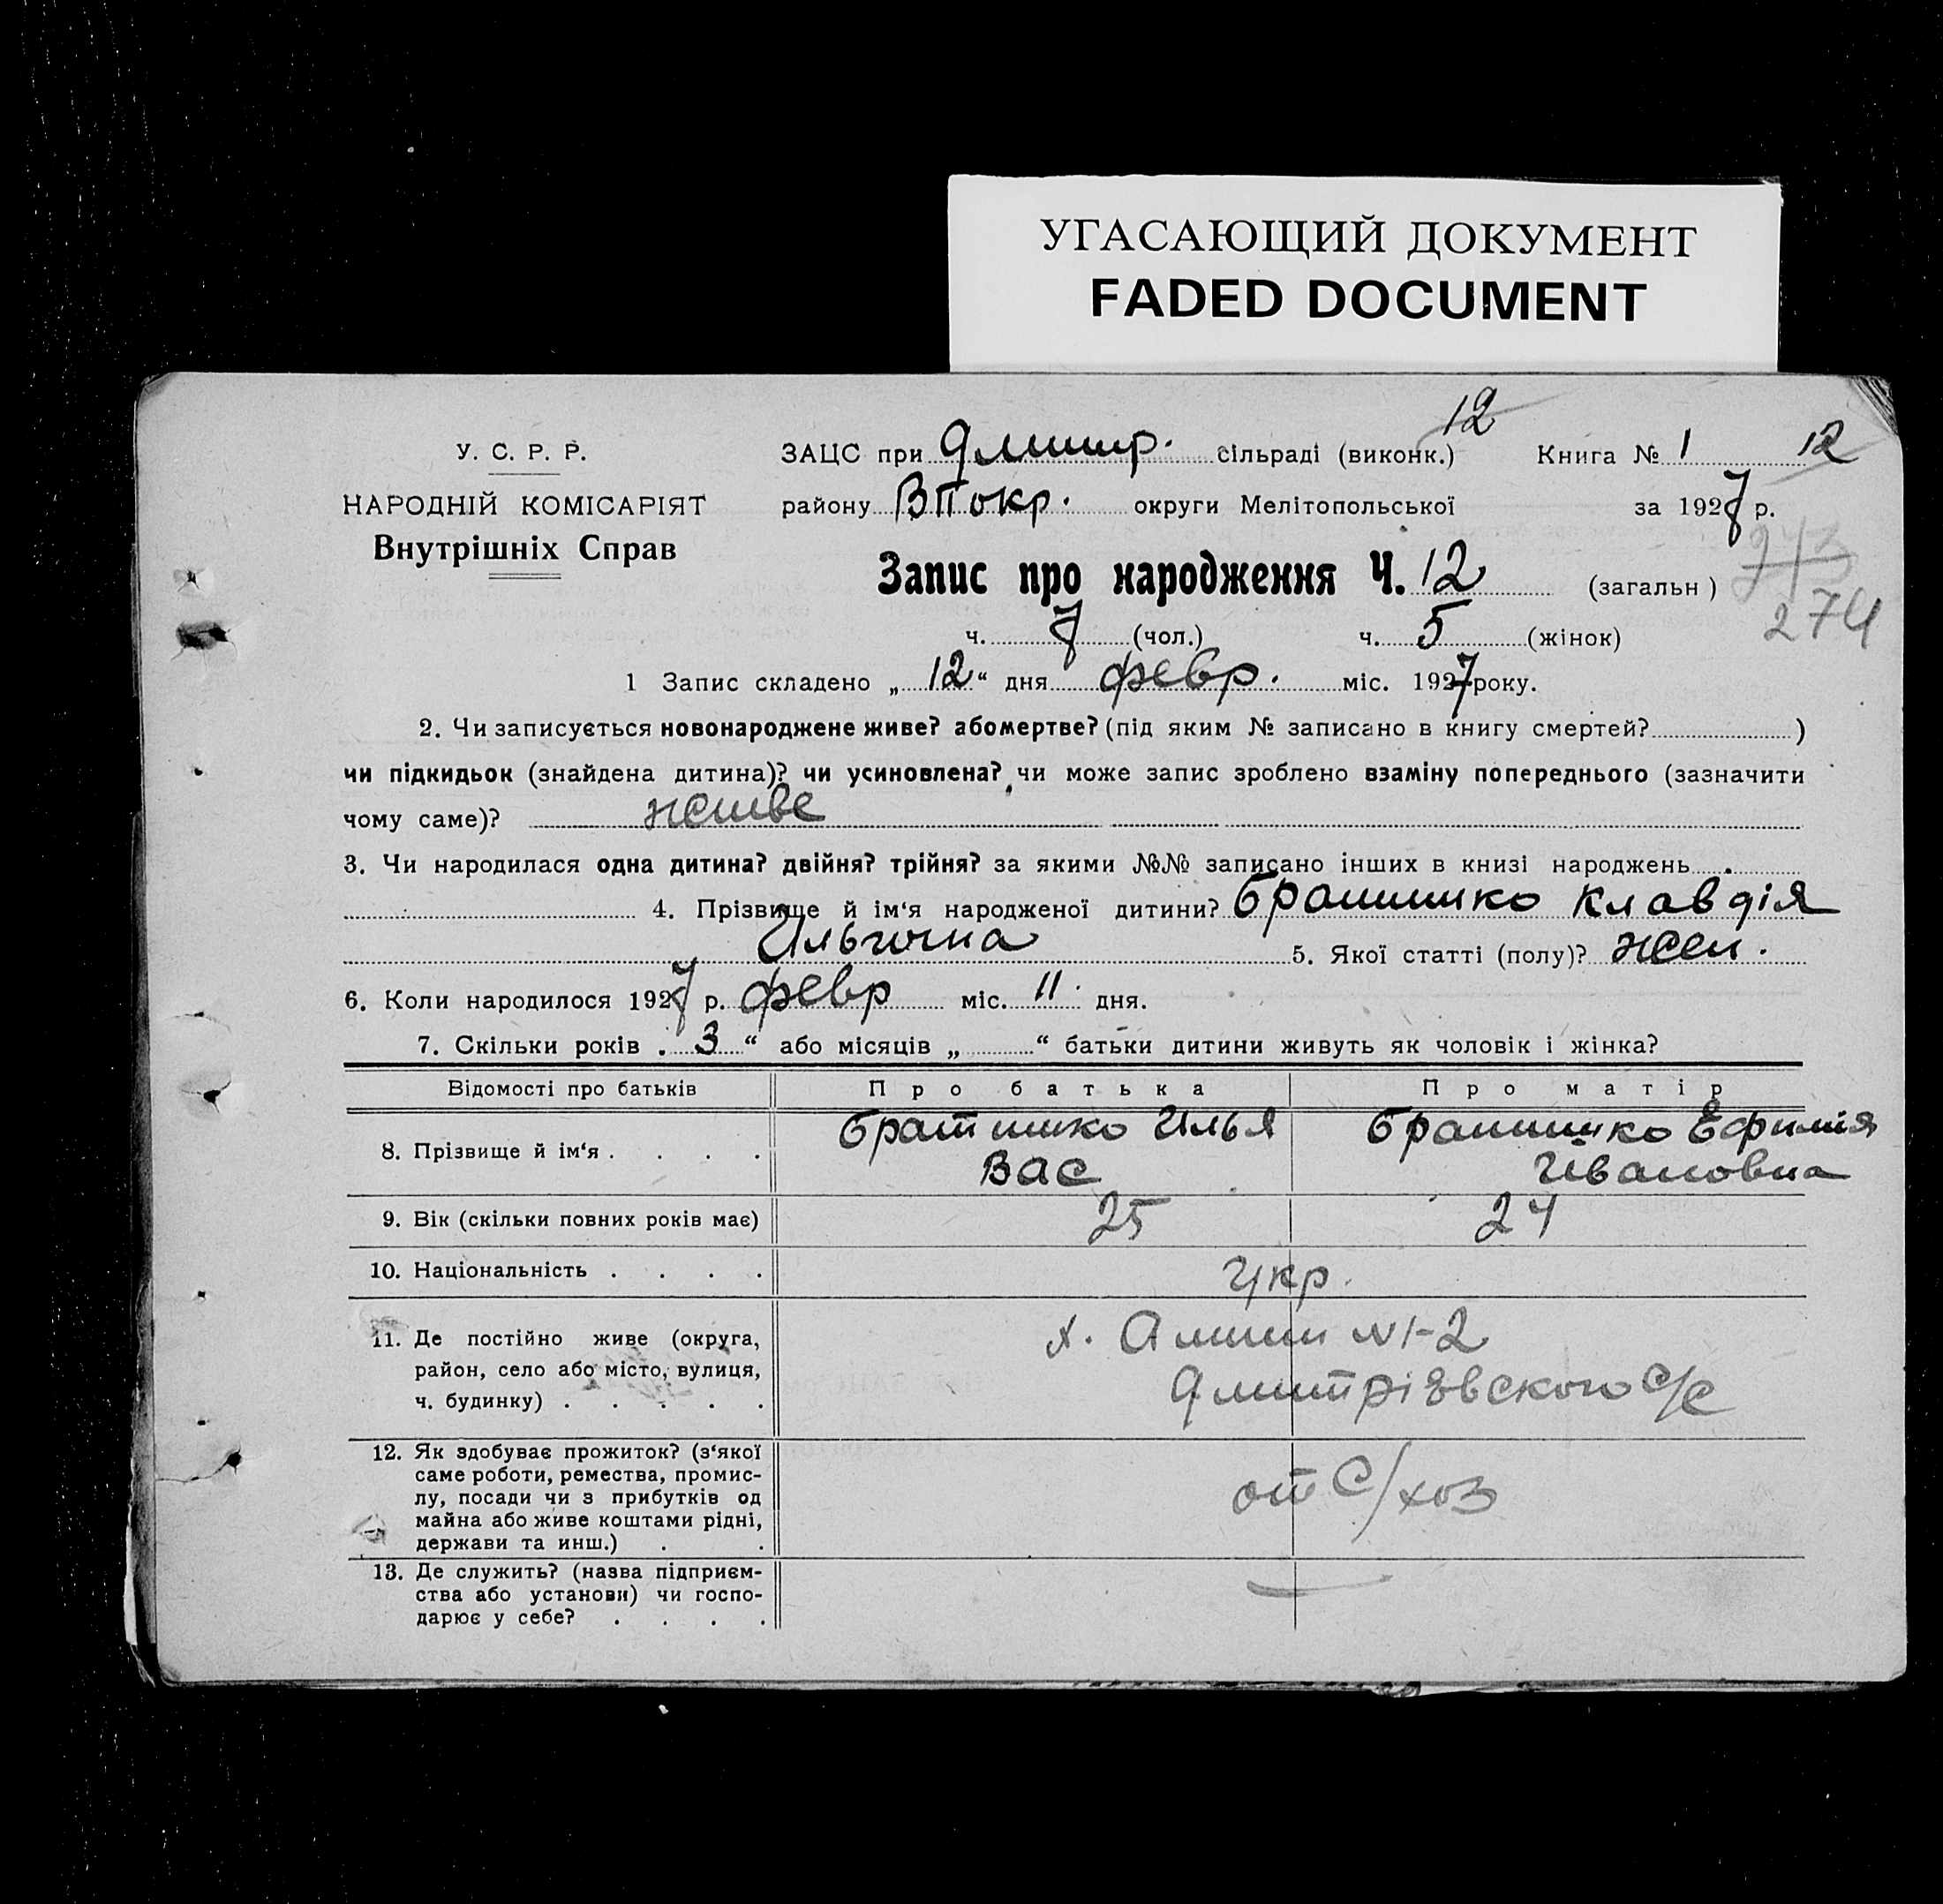 УГАСАЮЩИЙ ДОКУМЕНТ
FADED DOCUMENT
12
У. С. Р. Р.
ЗАЦС при Дмитр. сільраді (виконк.) Книга № 1 12
НАРОДНІЙ КОМІСАРІЯТ
району ВТокр. округи Мелітопольської за 1927 р.
Внутрішніх Справ
Запис про народження Ч. 12 (загальн)
273
274
ч. 7 (чол.) ч. 5 (жінок)
1 Запис складено „12“ дня февр. міс. 1927 року.
2. Чи записується новонароджене живе? або мертве? (під яким № записано в книгу смертей? )
чи підкидьок (знайдена дитина)? чи усиновлена? чи може запис зроблено взаміну попереднього (зазначити
чому саме)? живе
3. Чи народилася одна дитина? двійня? трійня? за якими №№ записано інших в книзі народжень
4. Прізвище й ім‘я народженої дитини? Братишко Клавдія
Ильічна 5. Якої статті (полу)? жен.
6. Коли народилося 1927 р. февр міс. 11 дня.
7. Скільки років „3“ або місяців „ “ батьки дитини живуть як чоловік і жінка?
Відомості про батьків Про батька Про матір
8. Прізвище й ім‘я . . . . Братишко Илья Братишко Ефимія
Вас Ивановна
9. Вік (скільки повних років має) 25 24
10. Національність . . . . Укр.
11. Де постійно живе (округа,
район, село або місто, вулиця,
ч. будинку) . . . . .
х. №1-2
Дмитріевского с/с
12. Як здобуває прожиток? (з‘якої
саме роботи, ремества, промис-
лу, посади чи з прибутків од
майна або живе коштами рідні,
держави та инш.) . .
от с/хоз
13. Де служить? (назва підприєм-
ства або установи) чи госпо-
дарює у себе? . . . .